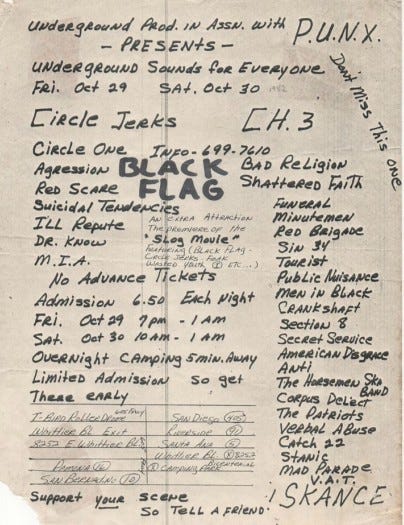 Underground Prod. in Assn. with P.U.N.X.
- PRESENTS -
UNDERGROUND SOUNDS for EVERYONE
Fri. Oct 29 SAT. Oct 30 1982
Don't Miss This one
Circle Jerks CH.3
Circle One Info-699-7610
BLACK FLAG
Agression
Red Scare
Suicidal Tendencies
Ill Repute
Dr. Know
M.I.A.
Bad Religion
Shattered Faith
An extra Attraction
The premiere of the
"Slog Movie"
Featuring (Black Flag -
Circle Jerks - Fear
Wasted Youth ETC...)
Funeral
Minutemen
Red Brigade
Sin 34
Tourist
Public Nuisance
Men in Black
Crankshaft
Section 8
Secret Service
American Disgrace
Anti
The Horsemen Ska
BAND
Corpus Delecti
The Patriots
Verbal Abuse
Catch 22
Stanic
Mad Parade
V.A.T.
SKANCE
No Advance Tickets
Admission 6.50 Each Night
Fri. Oct 29 7pm - 1 am
Sat. Oct 30 10am - 1 am
Overnight Camping 5 min. Away
Limited Admission So get
There early
T-Bird Roller Drome
Whittier Bl. Exit
8252 E. Whittier Bl.
Pomona
San Bernadino (10)
San Diego (605)
Riverside
Santa Ana (5)
Whittier Bl. 8252
Camping Park
Support your Scene
So Tell A friend!